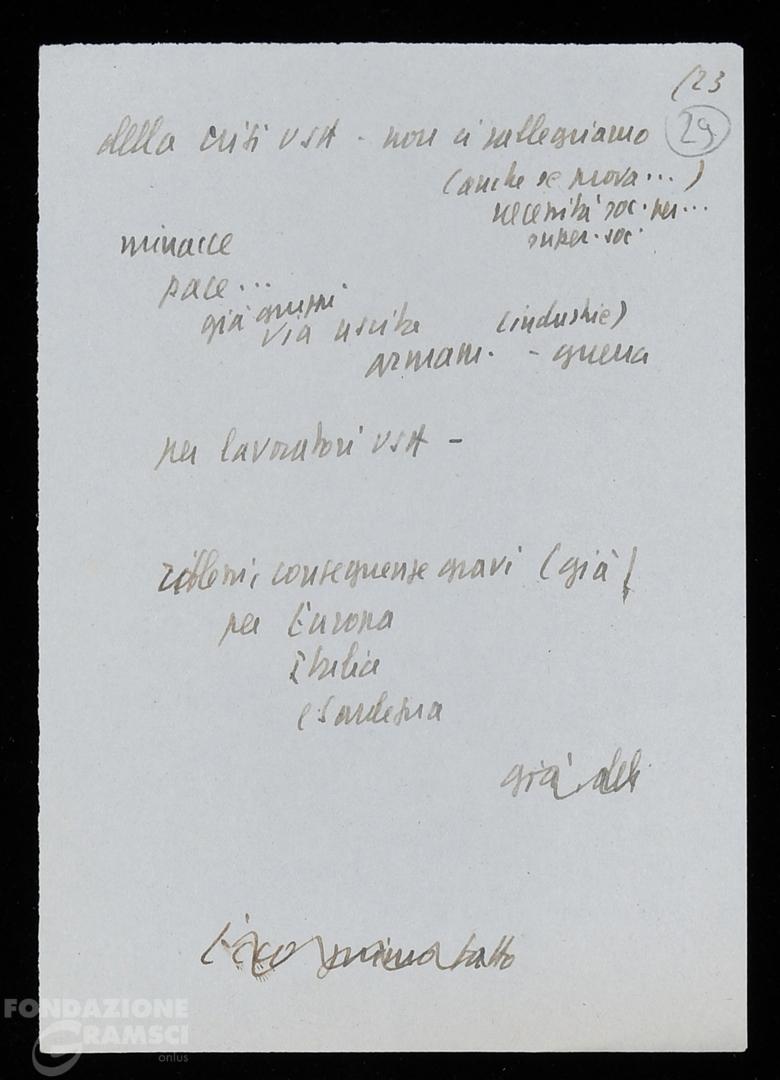 (23
29
della crisi USA - non ci rallegriamo
(anche se prova...)
necessità soc. per...
super. soc.
minacce
pace...
già gruppi
via uscita (industrie)
armam. - guerra
per lavoratori USA -
conseguenze gravi (già)
per Europa
Italia
e Sardegna
già
primo
FONDAZIONE
GRAMSCI
onlus